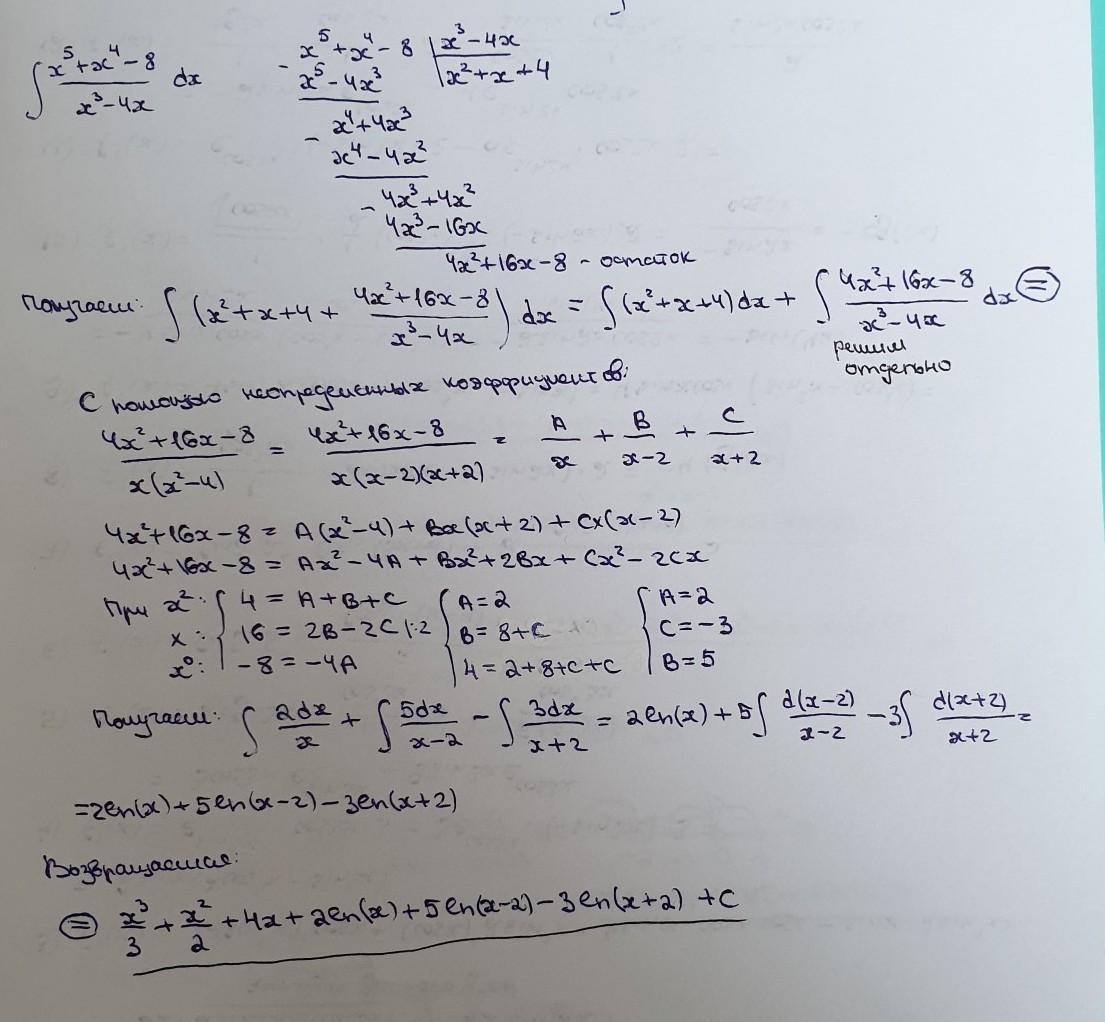 ∫ (x⁵+x⁴−8)/(x³−4x) dx
− x⁵+x⁴−8 | x³−4x
x⁵−4x³ | x²+x+4
− x⁴+4x³
x⁴−4x²
− 4x³+4x²
4x³−16x
4x²+16x−8 – остаток
Получаем: ∫ (x²+x+4 + (4x²+16x−8)/(x³−4x)) dx = ∫(x²+x+4)dx + ∫ (4x²+16x−8)/(x³−4x) dx ⊜
решим
отдельно
С помощью неопределенных коэффициентов:
(4x²+16x−8)/(x(x²−4)) = (4x²+16x−8)/(x(x−2)(x+2)) = A/x + B/(x−2) + C/(x+2)
4x²+16x−8 = A(x²−4) + Bx(x+2) + Cx(x−2)
4x²+16x−8 = Ax²−4A + Bx²+2Bx + Cx²−2Cx
При x²: { 4 = A+B+C { A=2 { A=2
x: 16 = 2B−2C |:2 B=8+C C=−3
x⁰: −8=−4A 4=2+8+C+C B=5
Получаем: ∫ 2dx/x + ∫ 5dx/(x−2) − ∫ 3dx/(x+2) = 2ln(x) + 5∫ d(x−2)/(x−2) − 3∫ d(x+2)/(x+2) =
=2ln(x)+5ln(x−2)−3ln(x+2)
Возвращаемся:
⊜ x³/3 + x²/2 + 4x + 2ln(x) + 5ln(x−2) − 3ln(x+2) + C